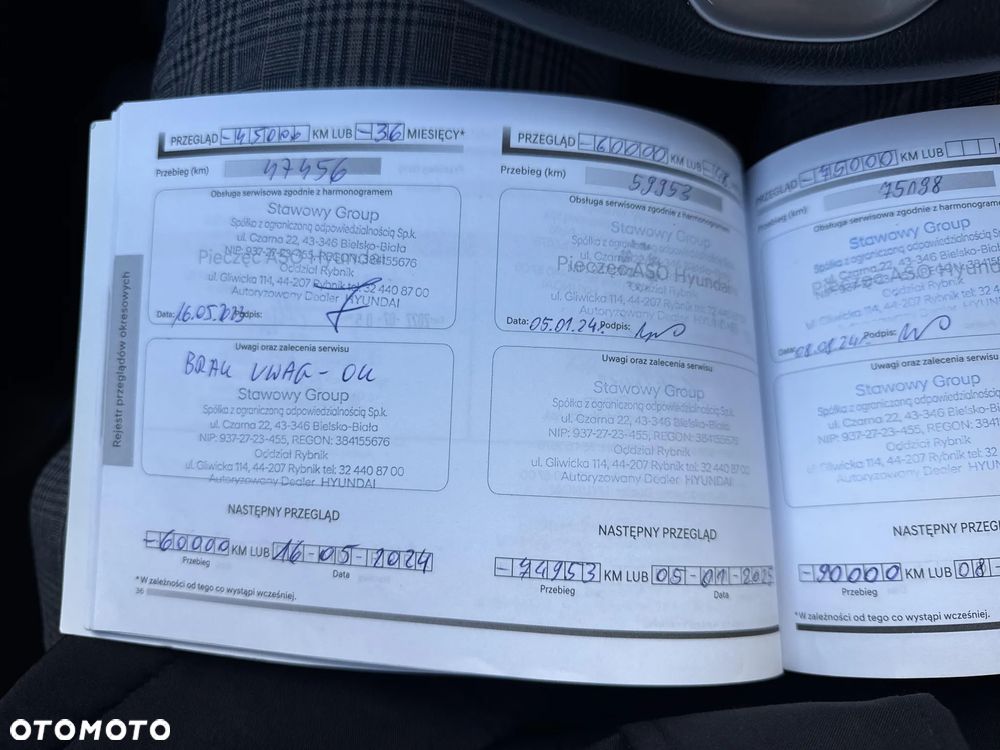 PRZEGLĄD -45000 KM LUB -36 MIESIĘCY*
Przebieg (km) 47456
Obsługa serwisowa zgodnie z harmonogramem
Stawowy Group
Spółka z ograniczoną odpowiedzialnością Sp.k.
ul. Czarna 22, 43-346 Bielsko-Biała
NIP: 937-27-23-455, REGON: 384155676
Pieczęć ASO Hyundai
Oddział Rybnik
ul. Gliwicka 114, 44-207 Rybnik tel: 32 440 87 00
Autoryzowany Dealer HYUNDAI
Data: 16.05.2023 Podpis:
Uwagi oraz zalecenia serwisu
BRAK UWAG - OK
Stawowy Group
Spółka z ograniczoną odpowiedzialnością Sp.k.
ul. Czarna 22, 43-346 Bielsko-Biała
NIP: 937-27-23-455, REGON: 384155676
Oddział Rybnik
ul. Gliwicka 114, 44-207 Rybnik tel: 32 440 87 00
Autoryzowany Dealer HYUNDAI
NASTĘPNY PRZEGLĄD
-60000 KM LUB 16-05-2024
Przebieg Data
*W zależności od tego co wystąpi wcześniej.
36
Rejestr przeglądów okresowych
PRZEGLĄD -60000 KM LUB
Przebieg (km) 59953
Obsługa serwisowa zgodnie z harmonogramem
Stawowy Group
Spółka z ograniczoną odpowiedzialnością Sp.k.
ul. Czarna 22, 43-346 Bielsko-Biała
Pieczęć ASO Hyundai
Oddział Rybnik
ul. Gliwicka 114, 44-207 Rybnik tel: 32 440 87 00
Autoryzowany Dealer HYUNDAI
Data: 05.01.24r. Podpis:
Uwagi oraz zalecenia serwisu
Stawowy Group
Spółka z ograniczoną odpowiedzialnością Sp.k.
ul. Czarna 22, 43-346 Bielsko-Biała
NIP: 937-27-23-455, REGON: 384155676
Oddział Rybnik
ul. Gliwicka 114, 44-207 Rybnik tel: 32 440 87 00
Autoryzowany Dealer HYUNDAI
NASTĘPNY PRZEGLĄD
-74953 KM LUB 05-01-2025
Przebieg Data
PRZEGLĄD -75000 KM LUB
Przebieg (km) 75098
Obsługa serwisowa zgodnie z harmonogramem
Stawowy Group
Spółka z ograniczoną odpowiedzialnością Sp
ul. Czarna 22, 43-346 Bielsko-Biała
ASO Hyund
Oddział Rybnik
ul. Gliwicka 114, 44-207 Rybnik tel: 32 4
Autoryzowany Dealer HYUNDAI
Data: 08.08.24r. Podpis:
Uwagi oraz zalecenia serwisu
Stawowy Group
Spółka z ograniczoną odpowiedzialnością
ul. Czarna 22, 43-346 Bielsko-B
NIP: 937-27-23-455, REGON: 3841
Oddział Rybnik
ul. Gliwicka 114, 44-207 Rybnik tel: 32
Autoryzowany Dealer HYUND
NASTĘPNY PRZEG
-90000 KM LUB 08-
Przebieg
*W zależności od tego co wystąpi wcześniej.
OTOMOTO